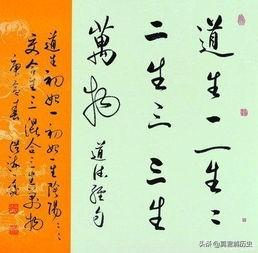 道生一一生二
二生三三生
萬物
道德經句
道生初始一初始一生陰陽二二
交合生三混合三生万物
庚寅春
头条